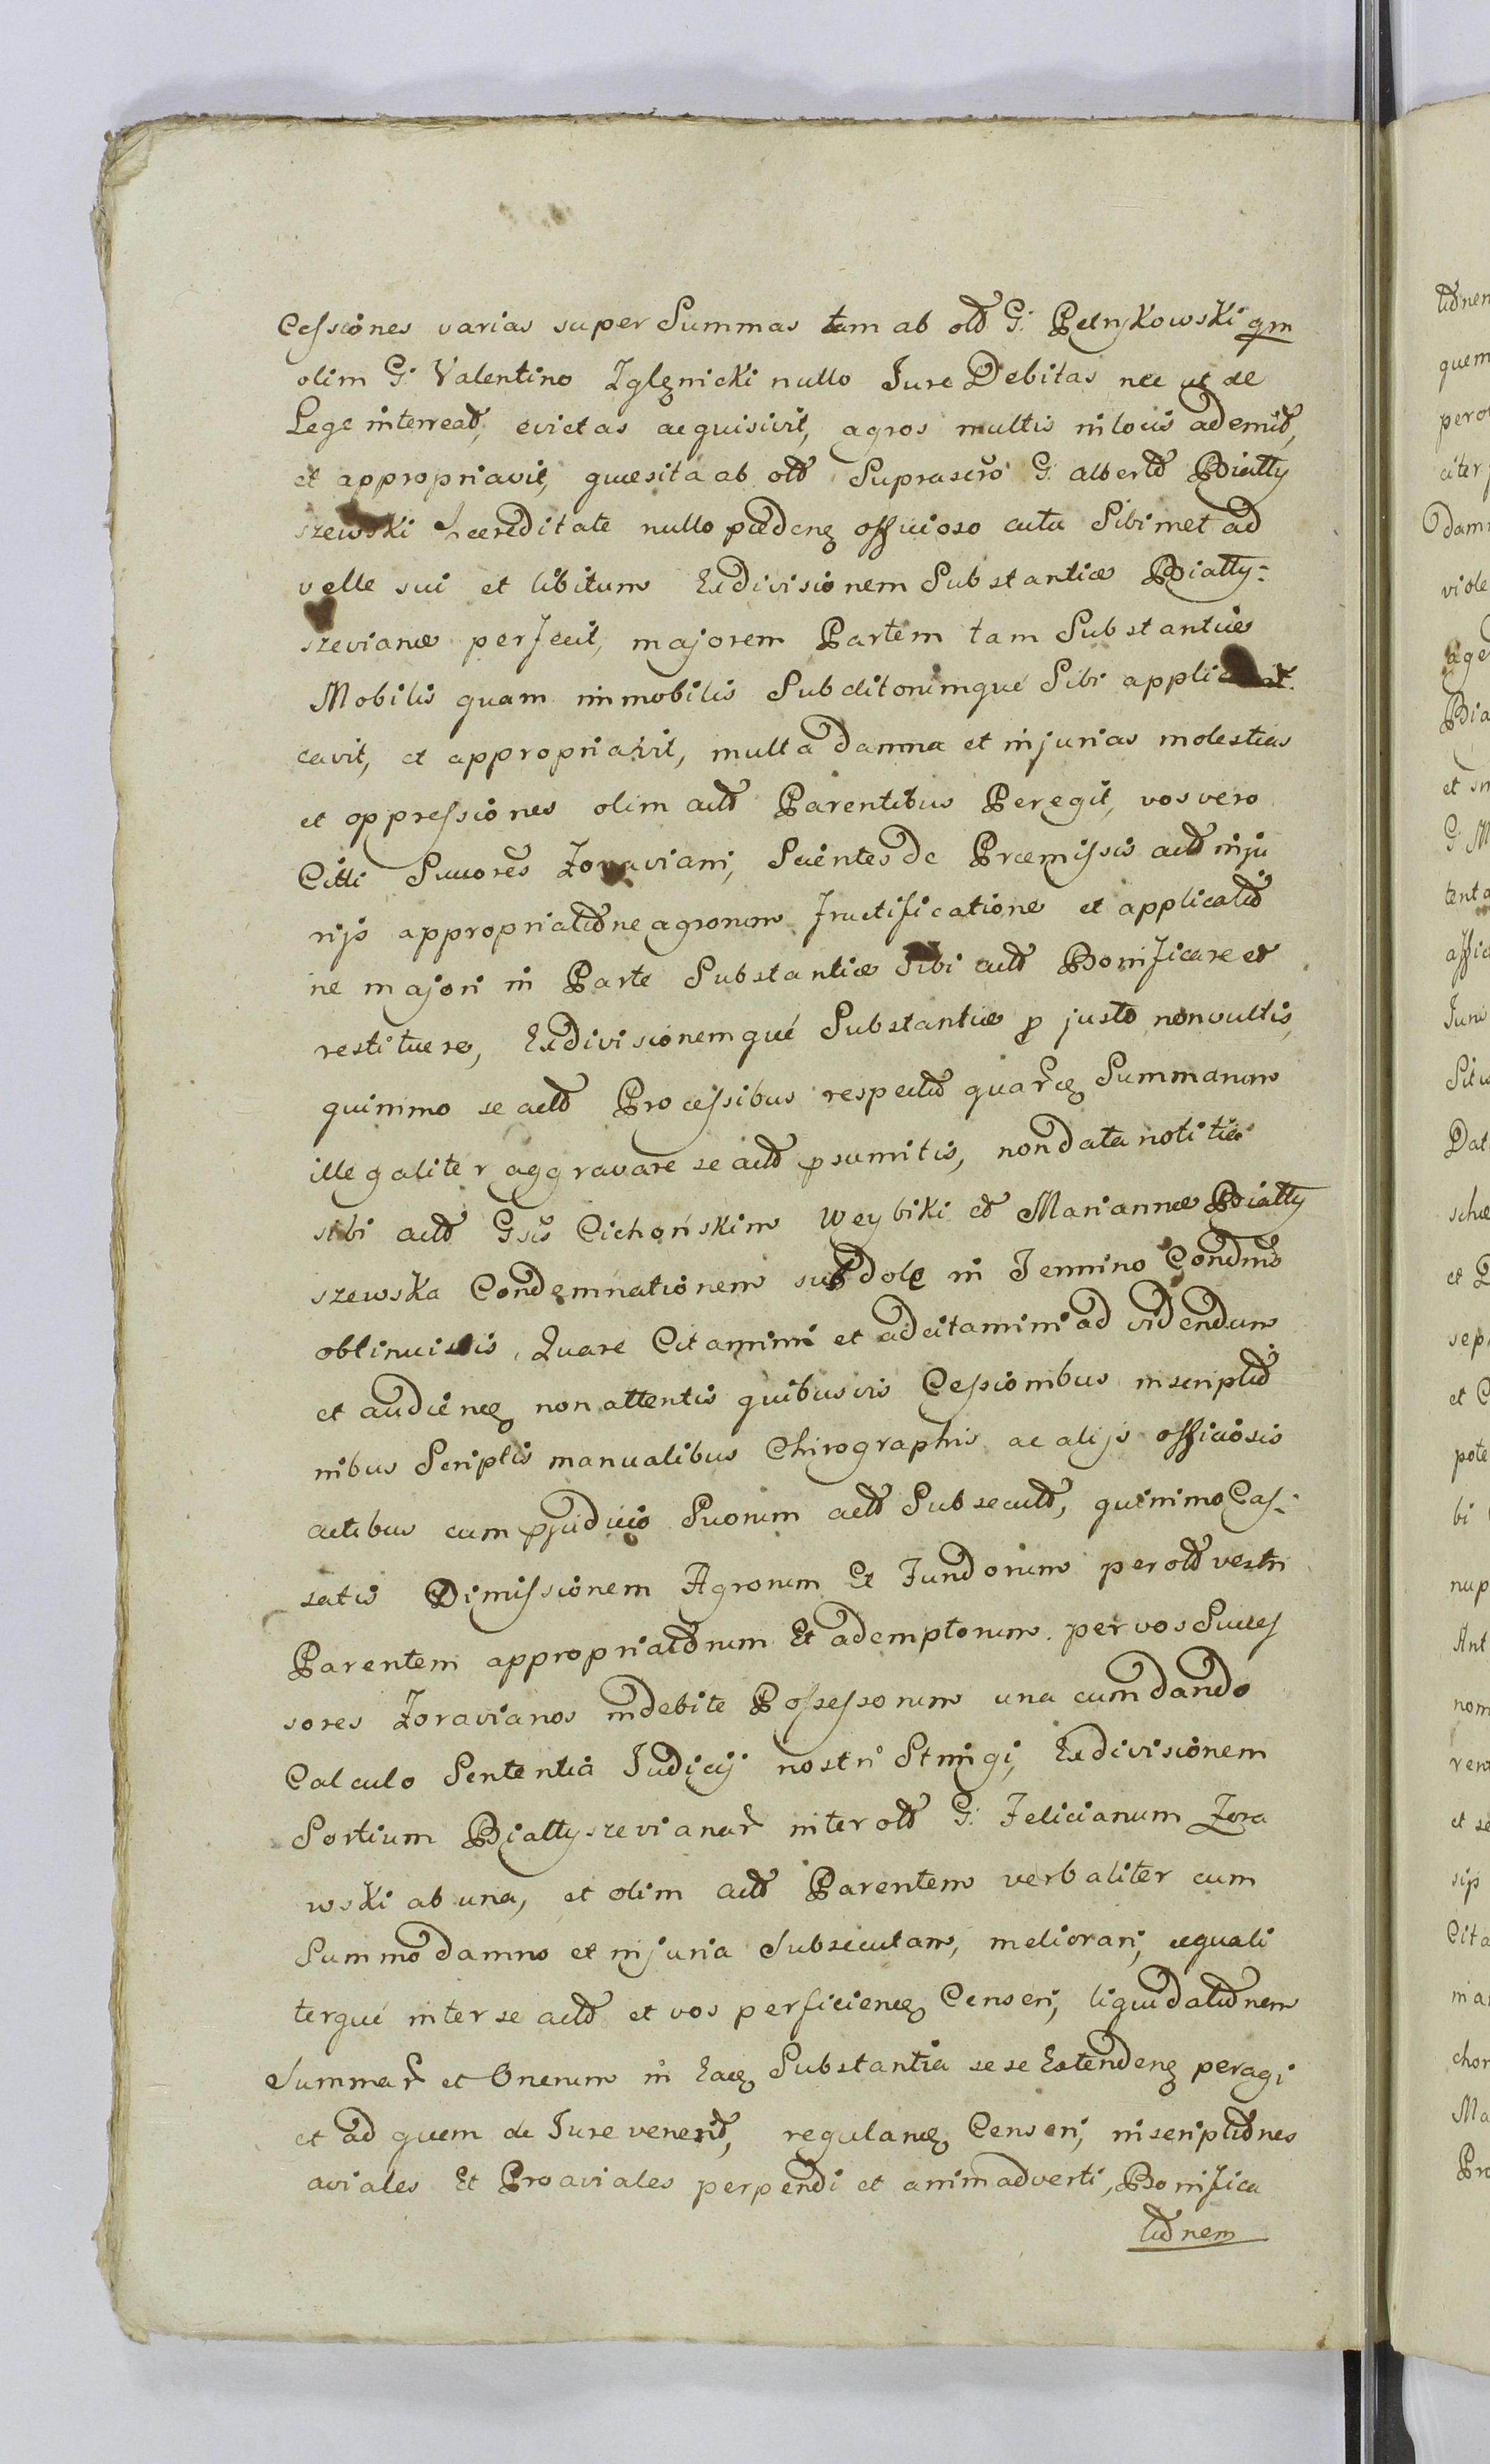 Cessiones varias super Summas tam ab olđ G. Petrykowski qm
olim G. Valentino Zglenicki nullo Jure Debitas nec ut de
Lege interread, evictas acquisivit, agros multis in locis ademit,
et appropriavit, quæsita ab olđ Suprascro G. Albertđ Białły
szewski hæreditate nullo præcedenę officioso actu Sibimet ad
velle sui et libitum Exdivisionem Substantiæ Białły-
szevianæ perfecit, majorem Partem tam Substantiæ
Mobilis quam immobilis Subditorumqué Sibi appli
cavit, et appropriavit, multa damna et injurias molestias
et oppressiones olim actđ Parentibus Peregit, vos vero
Citti Succores Zoraviani, Scientes de Præmissis actđ inju
rijs appropriatđne agrorum fructificatione et applicatđ
ne majori in Parte Substantiæ Sibi actđ Bonificare et
restituere, Exdivisionemqué Substantiæ p justo non vultis,
quinimo se actđ Processibus respectđ quarcę Summarum
illegaliter aggravare se actđ psumitis, non data notitia
sibi actđ Gsis Cichoński Weybiki et Mariannæ Białły
szewska Condemnationem subdole in Termino Condnis
obtinuistis, Quare Citamini et adcitamini ad videndum
et audiencę non attentis quibusvis Cessionibus inscriptđ
nibus Scriptis manualibus Chirographis ac alijs officiosis
actibus cum pjudicio Suorum actđ Subsecutđ, quinimo Cas-
satis Dimissionem Agrorum Et Fundorum per olđ vestri
Parentem appropriatđrum Et ademptorum per vos Succes
sores Zoravianos indebite Possessorum una cum dando
Calculo Sententiá Judicij nostri Stringi, Exdivisionem
Sortium Białłyszevianar inter olđ G. Felicianum Zora
wski ab una, et olim actđ Parentem verbaliter cum
Summo damno et injuria Subsecutam, meliorari, æquali
terqué inter se actđ et vos perficiencę Censeri, liquidatđnem
Summar et Onerum in Eacę Substantia sese Extendenę peragi
et ad quem de Jure venerit, regulancę Censeri, inscriptđnes
aviales Et Proaviales perpendi et animadverti, Bonifica
tđnem